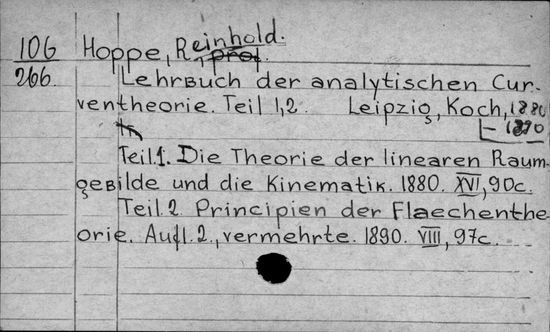 106
266.
Hoppe, Reinhold.
prof.
Lehrbuch der analytischen Cur-
ventheorie. Teil 1,2. Leipzig, Koch, 1880
-1890
Teil.1. Die Theorie der linearen Raum-
gebilde und die Kinematik. 1880. XVI, 90c.
Teil.2. Principien der Flaechenthe
orie. Aufl.2., vermehrte. 1890. VIII, 97c.